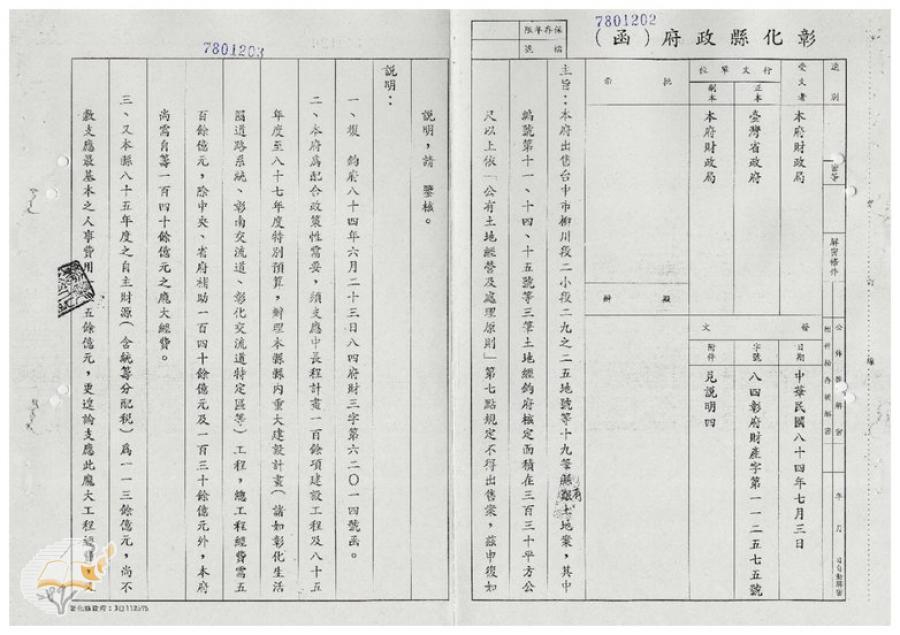 7801202
彰化縣政府（函）
保存年限
檔號
速別
密等
解密條件
公佈後解密
附件抽存後解密
年 月 日自動解密
受文者
本府財政局
行文單位
正本
臺灣省政府
副本
本府財政局
批示
擬辦
發文
日期
中華民國八十四年七月三日
字號
八四彰府財產字第一一二五七五號
附件
見說明四
主旨：本府出售台中市柳川段二小段二九之二五地號等十九筆縣有土地案，其中
編號第十一、十四、十五號等三筆土地經鈞府核定面積在三百三十平方公
尺以上依「公有土地經營及處理原則」第七點規定不得出售案，茲申復如
7801203
說明，請 鑒核。
說明：
一、復 鈞府八十四年六月二十三日八四府財三字第六二〇一四號函。
二、本府為配合政策性需要，須支應中長程計畫一百餘項建設工程及八十五
年度至八十七年度特別預算，辦理本縣縣內重大建設計畫（諸如彰化生活
圈道路系統、彰南交流道、彰化交流道特定區等）工程，總工程經費需五
百餘億元，除中央、省府補助一百四十餘億元及一百三十餘億元外，本府
尚需自籌一百四十餘億元之龐大經費。
三、又本縣八十五年度之自主財源（含統籌分配稅）為一一三餘億元，尚不
敷支應最基本之人事費用 五餘億元，更遑論支應此龐大工程經費，
裝 訂 線